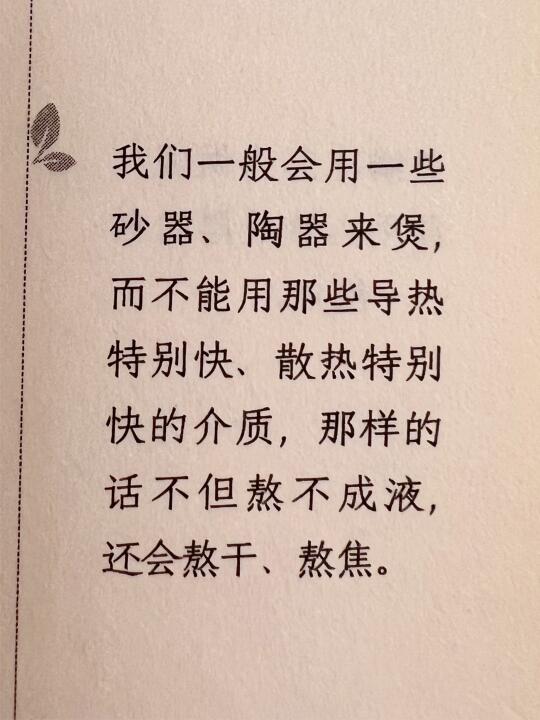 我们一般会用一些
砂器、陶器来煲，
而不能用那些导热
特别快、散热特别
快的介质，那样的
话不但熬不成液，
还会熬干、熬焦。